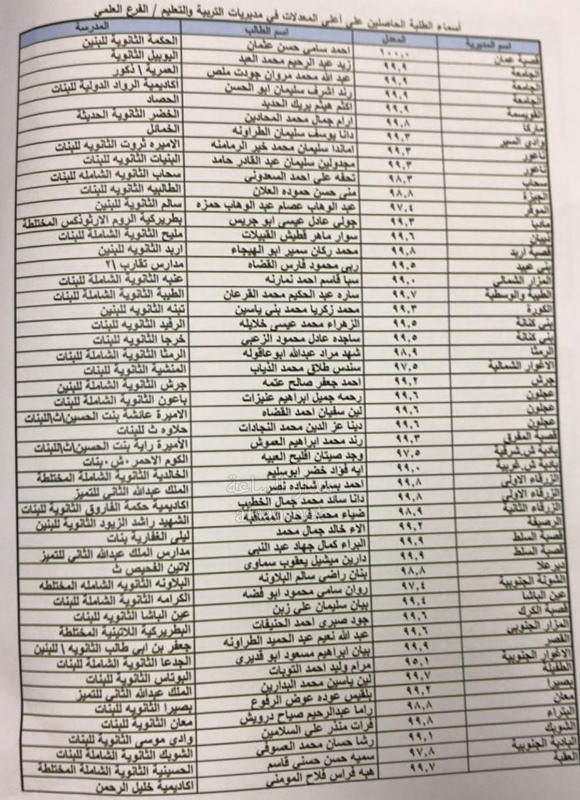 اسماء الطلبة الحاصلين على أعلى المعدلات في مديريات التربية والتعليم / الفرع العلمي
اسم المديرية المعدل اسم الطالب المدرسة
قصبة عمان ١٠٠,٠ احمد سامي حسن عثمان الحكمة الثانوية للبنين
الجامعة ٩٩,٩ زيد عبد الرحيم محمد العبد اليوبيل الثانوية
الجامعة ٩٩,٩ عبد الله محمد مروان جودت ملص العمرية / ذكور
الجامعة ٩٩,٩ رند اشرف سليمان ابو الحسن أكاديمية الرواد الدولية للبنات
القويسمة ٩٩,٩ اكثم هيثم بريك الحديد الحصاد
ماركا ٩٩,٨ ارام جمال محمد المحادين الخضر الثانوية الحديثة
وادي السير ٩٩,٣ دانا يوسف سليمان الطراونه الخمائل
ناعور ٩٩,٣ اماندا سليمان محمد خير الرمامنه الاميره ثروت الثانويه للبنات
ناعور ٩٩,٣ مجدولين سليمان عبد القادر حامد البنيات الثانوية للبنات
سحاب ٩٨,٣ تحفه علي احمد السعدوني سحاب الثانويه الشامله للبنات
الجيزة ٩٨,٨ منى حسن حموده العلان الطالبيه الثانويه للبنات
الموقر ٩٧,٤ عبد الوهاب عصام عبد الوهاب حمزه سالم الثانوية للبنين
مادبا ٩٩,٣ جولي عادل عيسى ابو جريس بطريركية الروم الارثوذكس المختلطة
ذيبان ٩٩,٦ سوار ماهر قطيش القبيلات مليح الثانوية الشاملة للبنات
قصبة اربد ٩٩,٨ محمد ركان سمير ابو الهيجاء اربد الثانويه للبنين
بني عبيد ٩٩,٥ ربى محمود فارس القضاه مدارس تقارب /٢
المزار الشمالي ٩٩,٠ سبا قاسم احمد نمارنه عنبه الثانوية الشاملة للبنات
الطيبة والوسطية ٩٩,٧ ساره عبد الحكيم محمد القرعان الطيبة الثانوية الشاملة للبنات
الكورة ٩٩,٣ محمد زكريا محمد بني ياسين تبنه الثانويه للبنين
بني كنانة ٩٩,٥ الزهراء محمد عيسى خلايله الرفيد الثانويه للبنات
بني كنانة ٩٩,٥ ساجده عادل محمود الزعبي خرجا الثانويه للبنات
الرمثا ٩٨,٩ شهد مراد عبدالله ابوعاقوله الرمثا الثانوية الشاملة للبنات
الاغوار الشمالية ٩٧,٥ سندس طلاق محمد الذياب المنشية الثانوية للبنات
جرش ٩٩,٢ احمد جعفر صالح عتمه جرش الثانوية الشاملة للبنين
عجلون ٩٩,٦ رحمه جميل ابراهيم عنيزات باعون الثانوية للبنات
عجلون ٩٩,٦ لين سفيان احمد القضاه الاميرة عائشة بنت الحسين\ث\للبنات
عجلون ٩٩,٦ دينا عز الدين محمد النجادات حلاوه ث للبنات
قصبة المفرق ٩٩,٣ رند محمد ابراهيم العموش الاميرة راية بنت الحسين\ث\للبنات
بادية ش.شرقية ٩٧,٥ وجد صيتان افليح العبيه الكوم الاحمر٠ش٠بنات
بادية ش.غربية ٩٩,٠ ايه فؤاد خضر ابوسليم الخالدية الثانوية الشاملة المختلطة
الزرقاء الاولى ٩٩,٨ احمد بسام شحاده نصر الملك عبدالله الثاني للتميز
الزرقاء الاولى ٩٩,٨ دانا سائد محمد جمال الخطيب اكاديمية حكمة الفاروق الثانوية للبنات
الزرقاء الثانية ٩٨,٩ ضياء محمد فرحان المشاقبه الشهيد راشد الزيود الثانوية للبنين
الرصيفة ٩٩,٢ الاء خالد جمال محمد ليلى الغفارية بنات
قصبة السلط ٩٩,٩ البراء كمال جهاد عبد النبي مدارس الملك عبدالله الثاني للتميز
قصبة السلط ٩٩,٩ دارين ميشيل يعقوب سماوي لاتين الفحيص ث
ديرعلا ٩٨,٨ بنان راضي سالم البلاونه البلاونه الثانويه الشامله المختلطه
الشونة الجنوبية ٩٧,٤ روان سامي محمود ابو فضه الكرامه الثانوية الشاملة للبنات
عين الباشا ٩٩,٤ بيان سليمان علي زين عين الباشا الثانويه للبنات
قصبة الكرك ٩٩,٦ جود صبري احمد الحنيفات البطريركية اللاتينية المختلطة
المزار الجنوبي ٩٩,٦ عبد الله نعيم عبد الحميد الطراونه جعفر بن ابي طالب الثانويه / للبنين
القصر ٩٩,٩ بيان ابراهيم مسعود ابو قديري الجدعا الثانوية الشاملة للبنات
الاغوار الجنوبية ٩٥,١ مرام وليد احمد التوبات البوتاس الثانوية للبنات
الطفيلة ٩٩,٧ لين ياسين محمد البدارين الملك عبدالله الثاني للتميز
بصيرا ٩٩,٢ بلقيس عوده عوض الرفوع بصيرا الثانويه للبنات
معان ٩٨,٨ راما عبدالرحيم صباح درويش معان الثانوية للبنات
البتراء ٩٩,٨ فرات منذر علي السلامين وادي موسى الثانوية للبنات
الشوبك ٩٩,١ رشا حسان محمد العسوفي الشوبك الثانوية الشاملة للبنات
البادية الجنوبية ٩٧,٨ سميه حسن حسني قاسم الحسينية الثانوية الشاملة المختلطة
العقبة ٩٩,٧ هبه فراس فلاح المومني اكاديمية خليل الرحمن